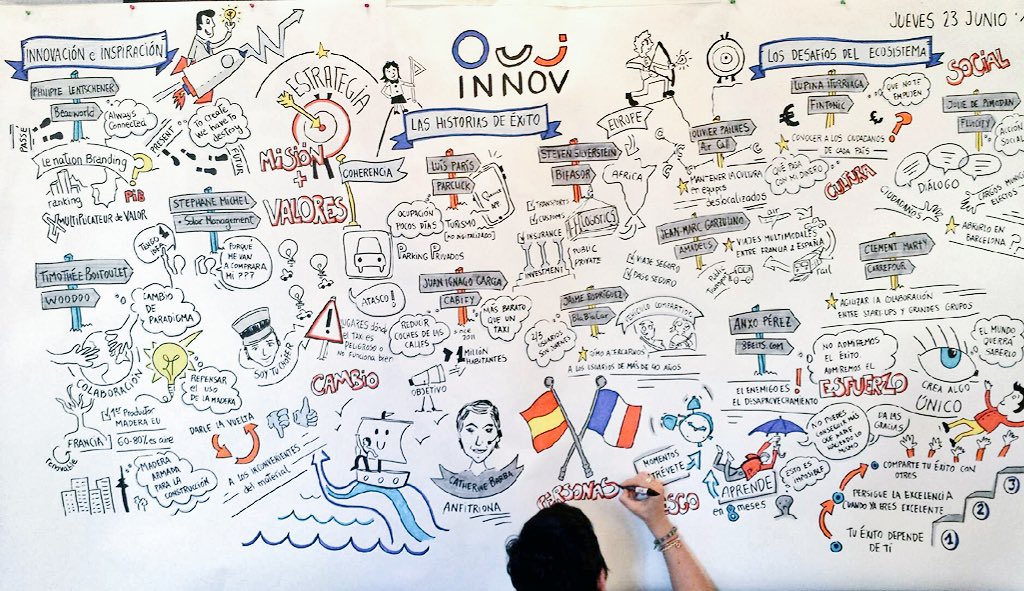 JUEVES 23 JUNIO
INNOVACIÓN e INSPIRACIÓN
PHILIPPE LENTSCHENER
Beaworld
Always
Connected
PASSÉ
PRESENT
FUTUR
To create
we have to
destroy
Le nation Branding
ranking
PiB
MULTIPLICATEUR de VALOR
STEPHANE MICHEL
Solar Management
TENGO
IDEA
PORQUE
ME VAN
A COMPRAR A
MI ???
TIMOTHÉE BOITOUZET
WOODOO
CAMBIO
DE
PARADIGMA
COLABORACIÓN
REPENSAR
EL USO
DE LA MADERA
1er Productor
MADERA EU
FRANCIA
60-80% es aire
renovable
MADERA
ARMADA
PARA LA
CONSTRUCCIÓN
DARLE LA VUELTA
A LOS INCONVENIENTES
del material
ESTRATEGIA
MISIÓN
+
VALORES
COHERENCIA
SOY TU CHOFER
OUI
INNOV
LAS HISTORIAS DE ÉXITO
LUÍS PARÍS
PARCLICK
OCUPACIÓN
POCOS DÍAS
TURISMO
[NO DIGITALIZADO]
PARKING PRIVADOS
ATASCO!
JUAN IGNACIO GARCÍA
CABIFY
LUGARES dónde
el TAXI es
PELIGROSO o
NO funciona bien
REDUCIR
COCHES DE LAS
CALLES
since
2011
MÁS BARATO
QUE UN
TAXI
1 MILLÓN
HABITANTES
CAMBIO
OBJETIVO
CATHERINE BARBA
ANFITRIONA
STEVEN SILVERSTEIN
BIFASOR
EUROPE
AFRICA
TRANSPORTS
CUSTOMS
INSURANCE
INVESTMENT
LOGISTICS
PUBLIC
PRIVATE
JAIME RODRÍGUEZ
BlaBlaCar
VIAJE SEGURO
PAGO SEGURO
VEHÍCULO COMPARTIDO
CÓMO ATERCARNOS
A LOS USUARIOS DE MÁS DE 40 AÑOS
PERSONAS
LOS DESAFÍOS DEL ECOSISTEMA
OLIVIER PAILHES
Air Call
MANTENER LA CULTURA
en equipos
deslocalizados
LUPINA ITURRIAGA
FINTONIC
QUE NO TE
EMPUJEN
CONOCER A LOS CIUDADANOS
DE CADA PAÍS
QUÉ PASA
CON MI DINERO
CULTURA
SOCIAL
JULIE DE PIMODAN
FLUICITY
ACCIÓN
SOCIAL
DIÁLOGO
CIUDADANOS
ABRIRLO EN
BARCELONA ?
JEAN-MARC GARBULINO
AMADEUS
air
rail
VIAJES MULTIMODALES
ENTRE FRANCIA & ESPAÑA
CLEMENT MARTY
CARREFOUR
AGILIZAR LA COLABORACIÓN
ENTRE STARTUPS Y GRANDES GRUPOS
ANXO PÉREZ
8BELTS.COM
EL ENEMIGO ES
EL DESAPROVECHAMIENTO
NO ADMIREMOS
EL ÉXITO
ADMIREMOS EL
ESFUERZO
CREA ALGO
ÚNICO
EL MUNDO
QUERRÁ
SABERLO
MOMENTOS
APRENDE
en 8 meses
ESTO ES
IMPOSIBLE
NO PUEDES
CONSEGUIR MÁS
QUE NADIE
HACIENDO LO
MISMO
DA LAS
GRACIAS
COMPARTE TU ÉXITO CON
OTROS
PERSIGUE LA EXCELENCIA
CUANDO YA ERES EXCELENTE
TU ÉXITO DEPENDE
DE TÍ
3
2
1